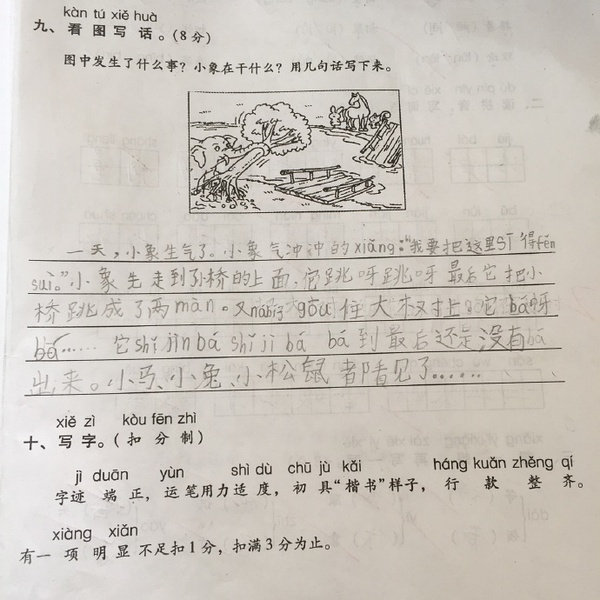 kàn tú xiě huà
九、看图写话。(8分)
图中发生了什么事？小象在干什么？用几句话写下来。
一天，小象生气了。小象气冲冲的xiǎng："我要把这里sī得fěn
suì。"小象先走到小桥的上面，它跳呀跳呀最后它把小
桥跳成了两màn。又 gōu住大树上。它bá呀
bá…… 它shǐ jìn bá shǐ jì bá bá到最后还是没有bá
出来。小马、小兔、小松鼠都看见了……
xiě zì kòu fēn zhì
十、写字。(扣分制)
jì duān yùn shì dù chū jù kǎi háng kuǎn zhěng qí
字迹端正，运笔用力适度，初具"楷书"样子，行款整齐。
xiàng xiǎn
有一项明显不足扣1分，扣满3分为止。